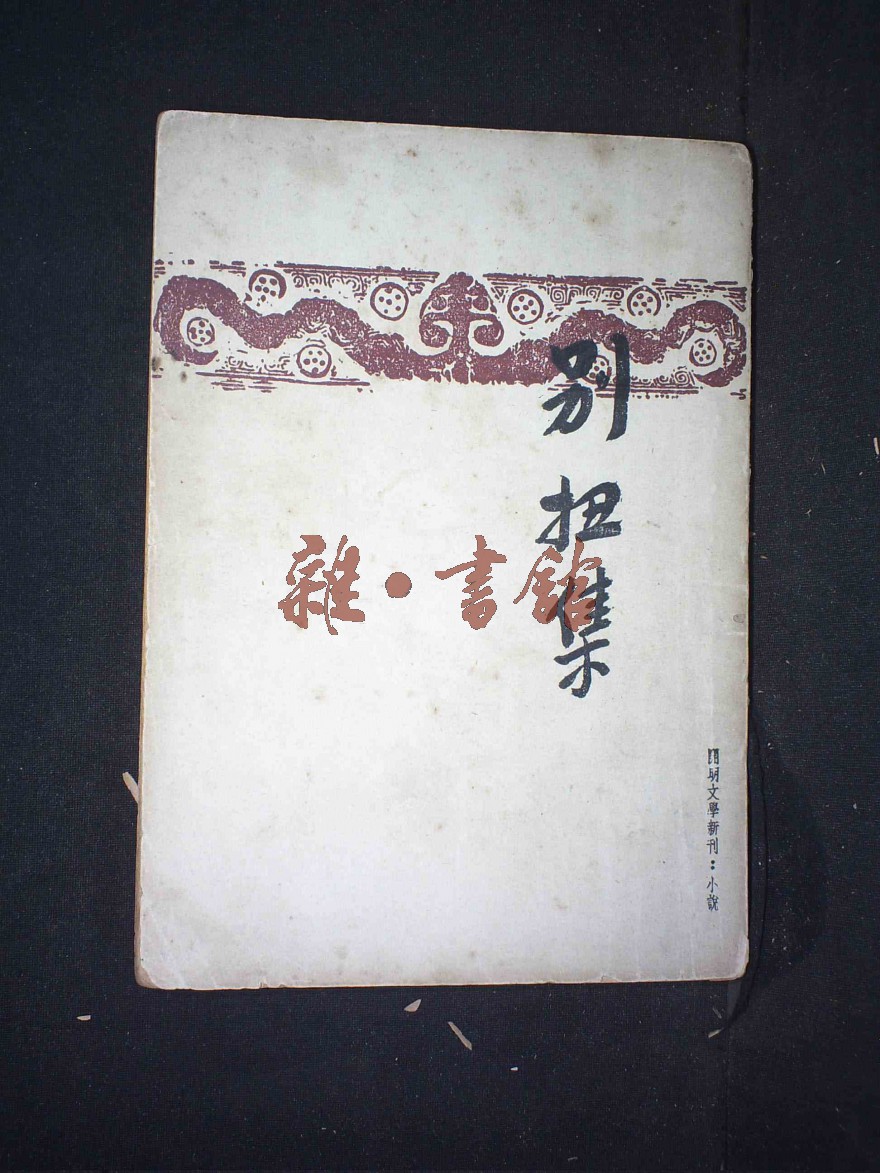 別扭集
雜·書館
開明文學新刊：小說